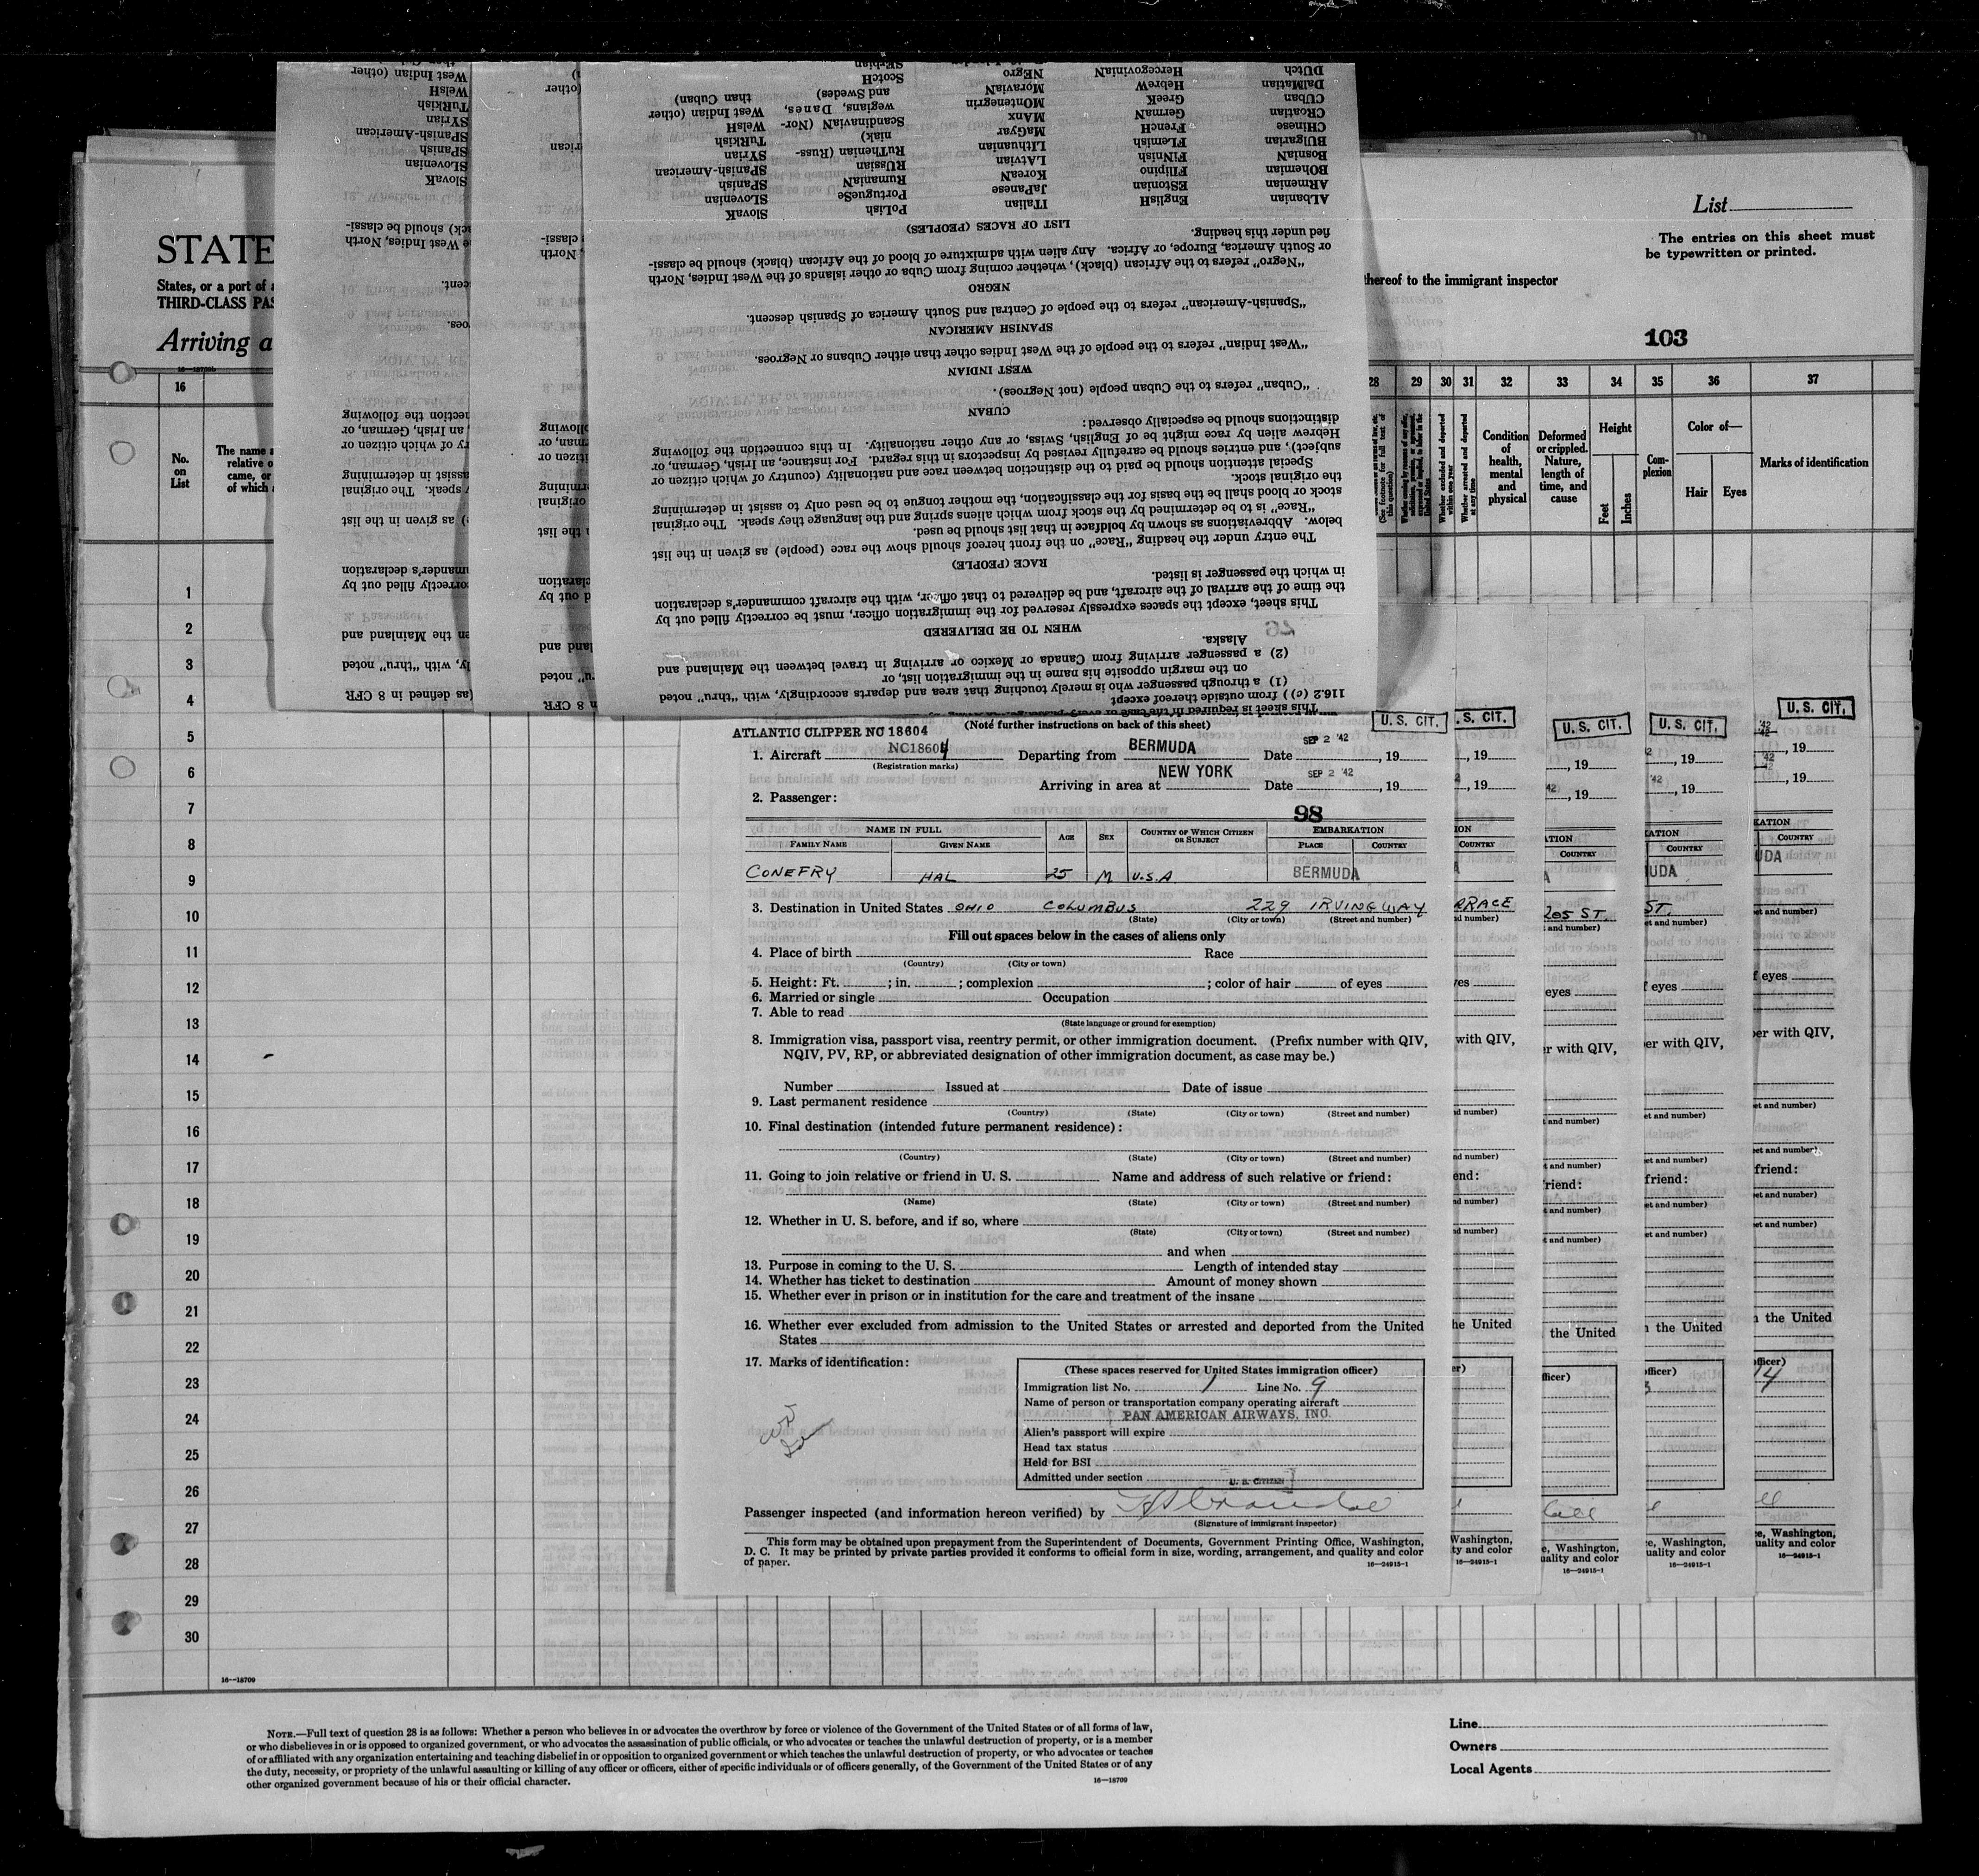 List
The entries on this sheet must
be typewritten or printed.
STATE
States, or a port of a
THIRD-CLASS PAS
thereof to the immigrant inspector
Arriving a
103
16—18709b
16
28 29 30 31 32 33 34 35 36 37
No.
on
List
The name a
relative o
came, or
of which a
(See footnote for full text of
this question)
Whether excluded and deported
within one year
Whether arrested and deported
at any time
Condition
of
health,
mental
and
physical
Deformed
or crippled.
Nature,
length of
time, and
cause
Height
Feet
Inches
Com-
plexion
Color of—
Hair
Eyes
Marks of identification
1
2
3
4
5
6
7
8
9
10
11
12
13
14
15
16
17
18
19
20
21
22
23
24
25
26
27
28
29
30
This sheet is required in the case of every passenger
116.2 (c)) from outside thereof except
(1) a through passenger who is merely touching that area and departs accordingly, with "thru" noted
on the margin opposite his name in the immigration list, or
(2) a passenger arriving from Canada or Mexico or arriving in travel between the Mainland and
Alaska.
WHEN TO BE DELIVERED
This sheet, except the spaces expressly reserved for the immigration officer, must be correctly filled out by
the time of the arrival of the aircraft, and be delivered to that officer, with the aircraft commander's declaration
in which the passenger is listed.
RACE (PEOPLE)
The entry under the heading "Race" on the front hereof should show the race (people) as given in the list
below. Abbreviations as shown by boldface in that list should be used.
"Race" is to be determined by the stock from which aliens spring and the language they speak. The original
stock or blood shall be the basis for the classification, the mother tongue to be used only to assist in determining
the original stock.
Special attention should be paid to the distinction between race and nationality (country of which citizen or
subject), and entries should be carefully revised by inspectors in this regard. For instance, an Irish, German, or
Hebrew alien by race might be of English, Swiss, or any other nationality. In this connection the following
distinctions should be especially observed:
CUBAN
"Cuban" refers to the Cuban people (not Negroes).
WEST INDIAN
"West Indian" refers to the people of the West Indies other than either Cubans or Negroes.
SPANISH AMERICAN
"Spanish-American" refers to the people of Central and South America of Spanish descent.
NEGRO
"Negro" refers to the African (black), whether coming from Cuba or other islands of the West Indies, North
or South America, Europe, or Africa. Any alien with admixture of blood of the African (black) should be classi-
fied under this heading.
LIST OF RACES (PEOPLES)
ALbanian EnglisH ITalian PoLish SlovaK
ARmenian EStonian JaPanese PortugueSe SLovenian
BOhemian FIlipino KoreaN RumaniaN SPanish
BosniaN FINNish LAtvian RUssian SPanish-American
BUlgarian FLemish LIthuanian RuThenian (Russ- SYrian
CHInese FrencH MaGyar niak) TuRkish
CRoatian GermaN MAnx ScandinaviaN (Nor- WelsH
CUban GreeK MOntenegrin wegians, Danes, West Indian (other
DalMatian HebreW MoraviaN and Swedes) than Cuban)
DUtch HercegovinaN NEgro ScotcH
SErbian
(Note further instructions on back of this sheet)
ATLANTIC CLIPPER NC 18604
U. S. CIT.
.S. CIT.
U. S. CIT.
U. S. CIT.
U. S. CIT.
1. Aircraft NC18604 Departing from BERMUDA Date SEP 2 '42, 19
(Registration marks)
Arriving in area at NEW YORK Date SEP 2 '42, 19
2. Passenger:
98
NAME IN FULL
FAMILY NAME GIVEN NAME
AGE SEX
COUNTRY OF WHICH CITIZEN
OR SUBJECT
EMBARKATION
PLACE COUNTRY
CONEFRY HAL 25 M U.S.A. BERMUDA
3. Destination in United States OHIO COLUMBUS 229 IRVING WAY
(State) (City or town) (Street and number)
RRACE
205 ST.
ST.
Fill out spaces below in the cases of aliens only
4. Place of birth Race
(Country) (City or town)
5. Height: Ft. ; in. ; complexion ; color of hair of eyes
6. Married or single Occupation
7. Able to read
(State language or ground for exemption)
8. Immigration visa, passport visa, reentry permit, or other immigration document. (Prefix number with QIV,
NQIV, PV, RP, or abbreviated designation of other immigration document, as case may be.)
Number Issued at Date of issue
9. Last permanent residence
(Country) (State) (City or town) (Street and number)
10. Final destination (intended future permanent residence):
(Country) (State) (City or town) (Street and number)
11. Going to join relative or friend in U. S. Name and address of such relative or friend:
(Name) (State) (City or town) (Street and number)
12. Whether in U. S. before, and if so, where
(State) (City or town) (Street and number)
and when
13. Purpose in coming to the U. S. Length of intended stay
14. Whether has ticket to destination Amount of money shown
15. Whether ever in prison or in institution for the care and treatment of the insane
16. Whether ever excluded from admission to the United States or arrested and deported from the United
States
17. Marks of identification:
(These spaces reserved for United States immigration officer)
Immigration list No. 1 Line No. 9
Name of person or transportation company operating aircraft
PAN AMERICAN AIRWAYS, INC.
Alien's passport will expire
Head tax status
Held for BSI
Admitted under section U. S. CITIZEN
Passenger inspected (and information hereon verified) by
(Signature of immigrant inspector)
This form may be obtained upon prepayment from the Superintendent of Documents, Government Printing Office, Washington,
D. C. It may be printed by private parties provided it conforms to official form in size, wording, arrangement, and quality and color
of paper.
16—24915-1
16—18709
NOTE.—Full text of question 28 is as follows: Whether a person who believes in or advocates the overthrow by force or violence of the Government of the United States or of all forms of law,
or who disbelieves in or is opposed to organized government, or who advocates the assassination of public officials, or who advocates or teaches the unlawful destruction of property, or is a member
of or affiliated with any organization entertaining and teaching disbelief in or opposition to organized government or which teaches the unlawful destruction of property, or who advocates or teaches
the duty, necessity, or propriety of the unlawful assaulting or killing of any officer or officers, either of specific individuals or of officers generally, of the Government of the United States or of any
other organized government because of his or their official character.
16—18709
Line
Owners
Local Agents